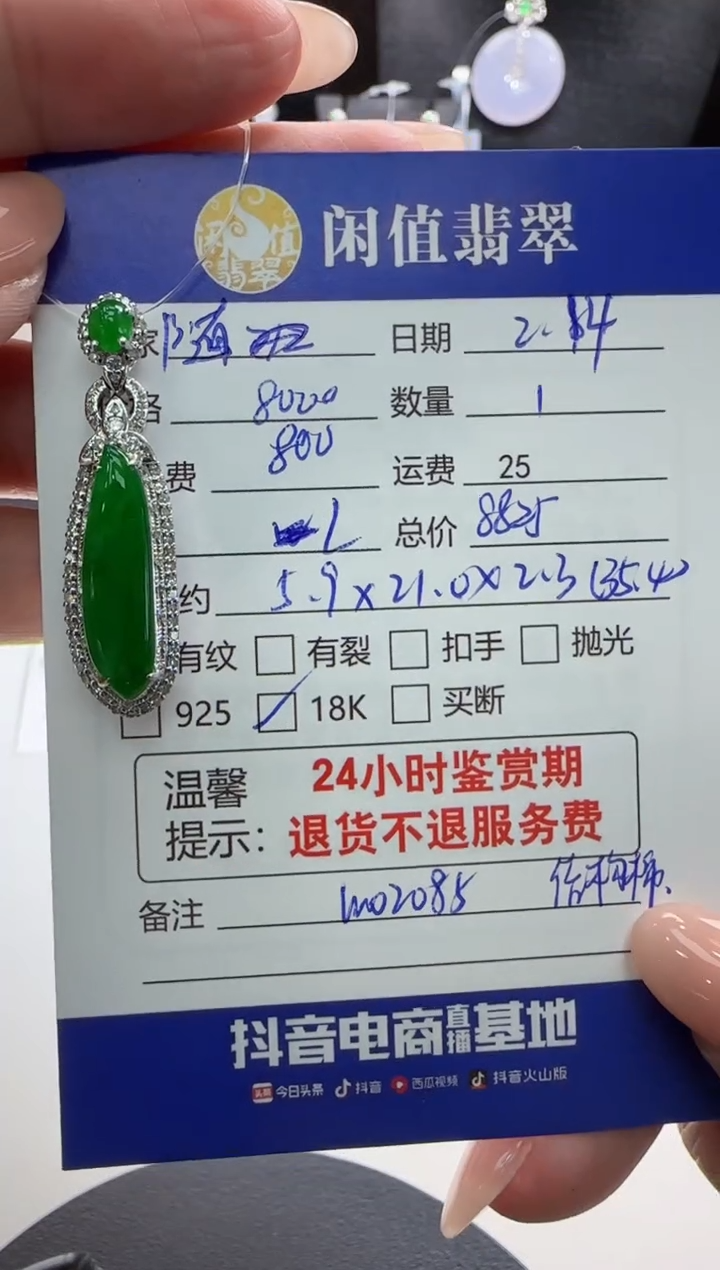 闲值翡翠
闲值翡翠
家 随
日期 2.14
格 8000
数量 1
费 800
运费 25
总价 8825
约 5.9×21.0×2.3(35.4)
有纹 有裂 扣手 抛光
925 18K 买断
温馨提示:
24小时鉴赏期
退货不退服务费
备注
抖音电商直播基地
头条 今日头条 抖音 西瓜视频 抖音火山版